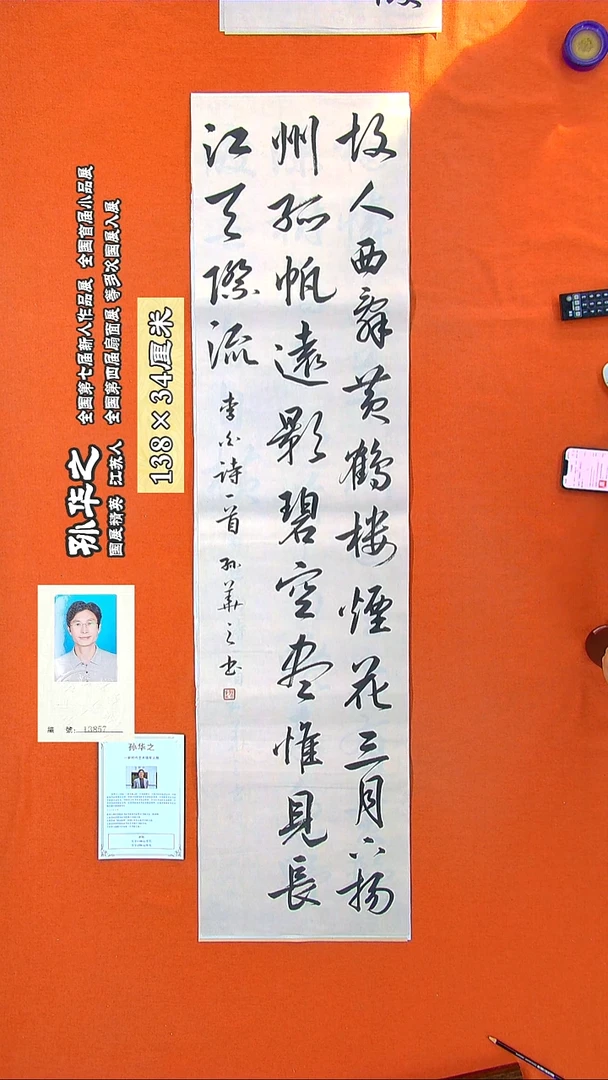 故人西辭黄鶴楼煙花三月下揚
州孤帆遠影碧空尽惟見長
江天際流
李白诗一首 孙華之书
孙华之
国展精英 江苏人
全国第七届新人作品展 全国首届小品展
全国第四届扇面展 等多次国展入展
138×34厘米
編 號: 13857
孙华之